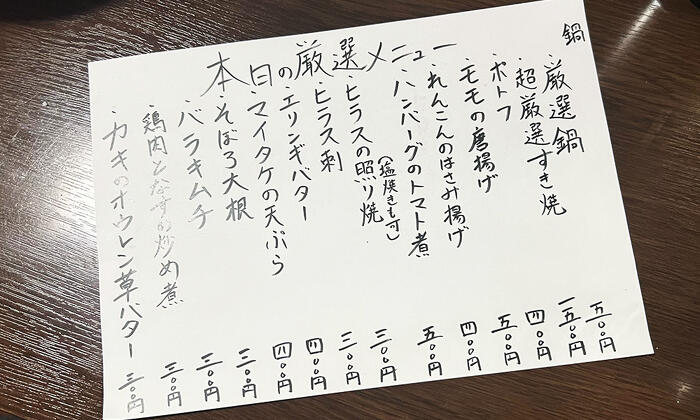 本日の厳選メニュー
鍋
・厳選鍋 五〇〇円
・超厳選すき焼 一五〇〇円
・ポトフ 四〇〇円
・モモの唐揚げ 五〇〇円
・れんこんのはさみ揚げ 四〇〇円
・ハンバーグのトマト煮 五〇〇円
・ヒラスの照り焼 三〇〇円
(塩焼きも可)
・ヒラス刺 三〇〇円
・エリンギバター 四〇〇円
・マイタケの天ぷら 四〇〇円
・そぼろ大根 三〇〇円
・バラキムチ 三〇〇円
・鶏肉となすの炒め煮 三〇〇円
・カキのホウレン草バター 三〇〇円